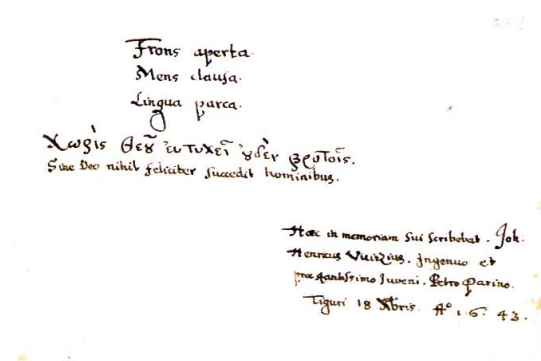 Frons aperta.
Mens clausa.
Lingua parca.
Χωρὶς Θεοῦ εὐτυχεῖ οὐδὲν βροτοῖς.
Sine Deo nihil feliciter succedit hominibus.
Haec in memoriam sui scribebat. Joh.
Henricus Wirzius. ingenuo et
praestantissimo Juveni. Petro Parino.
Tiguri 18 Xbris. Aº 1.6.43.